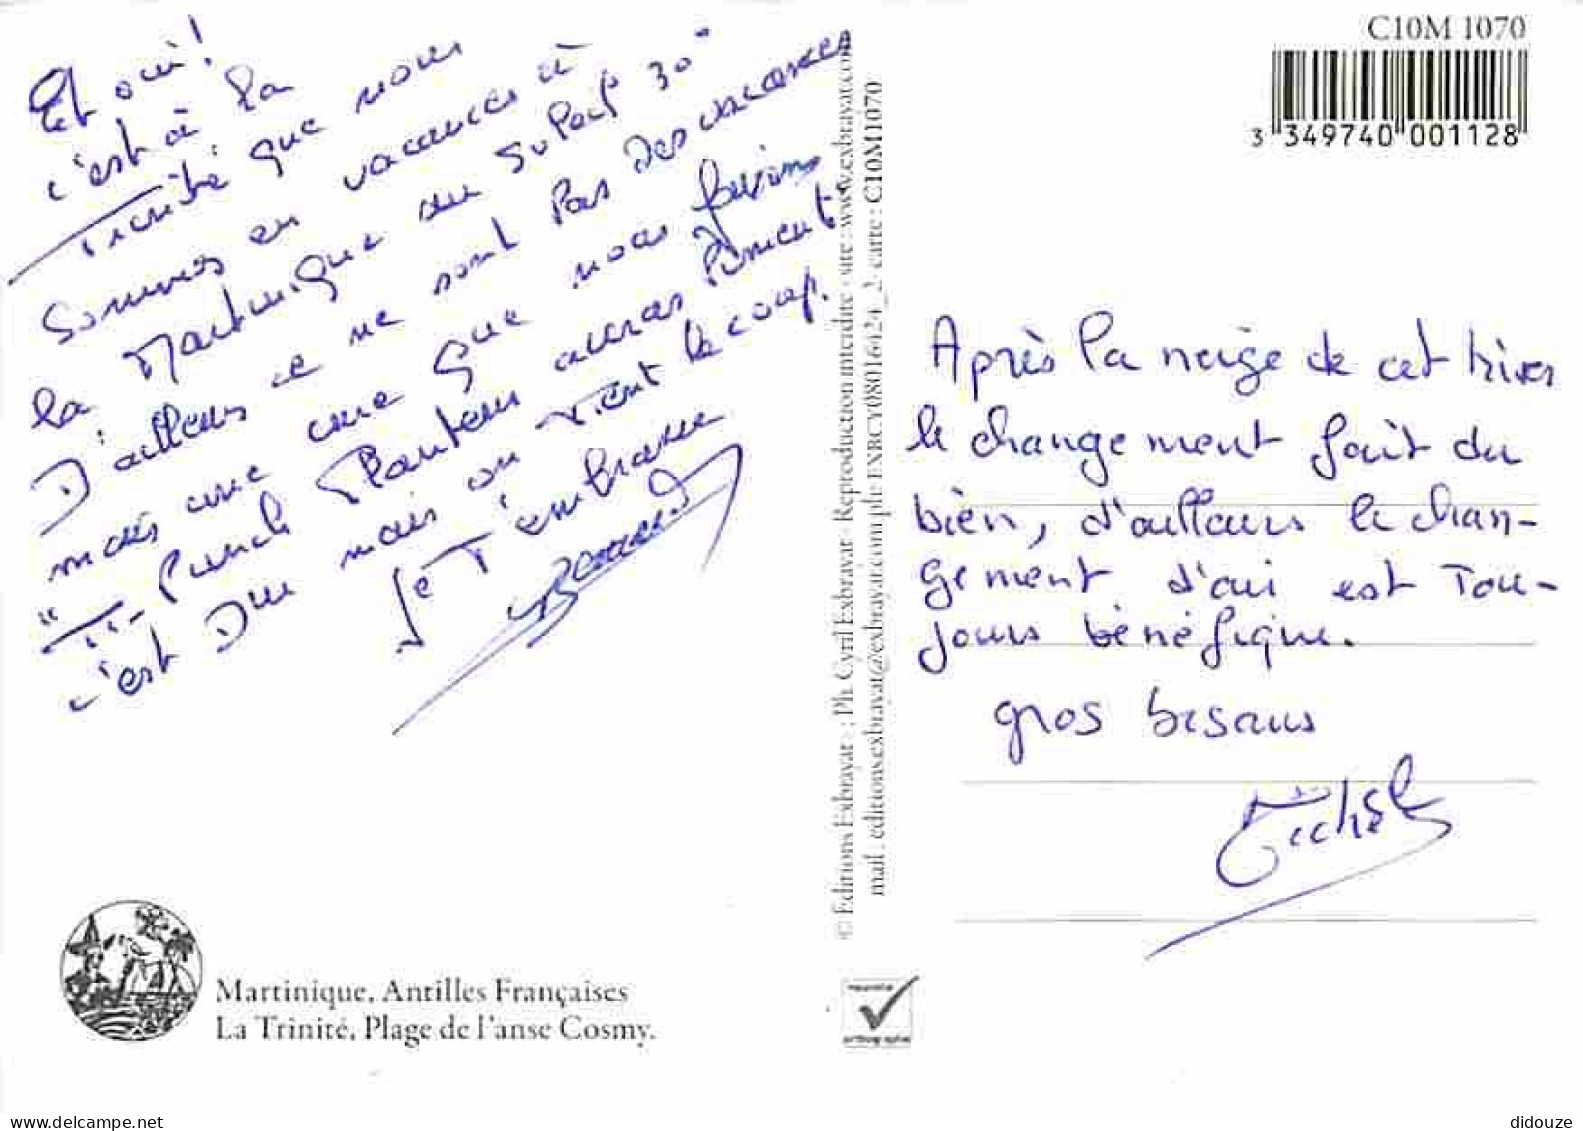 Et oui !
c'est à la
Trinité que nous
sommes en vacances à
la Martinique du soleil 30°
D'ailleurs ce ne sont pas des vacances
mais une cure que nous faisons
"Ti-Punch Planteur accras Piment"
c'est Dur mais on Tient le coup.
Je T'embrasse
Martinique, Antilles Françaises
La Trinité, Plage de l'anse Cosmy.
© Editions Exbrayat - Ph. Cyril Exbrayat - Reproduction interdite - site : www.exbrayat.com
mail : editions.exbrayat@exbrayat.com - ph: EXBCY08016424_2 - carte : C10M1070
C10M 1070
3 349740 001128
Après la neige de cet hiver
le changement fait du
bien, d'ailleurs le chan-
gement d'air est Tou-
jours bénéfique.
gros bisous
Michèle
nouvelle
orthographe
didouze